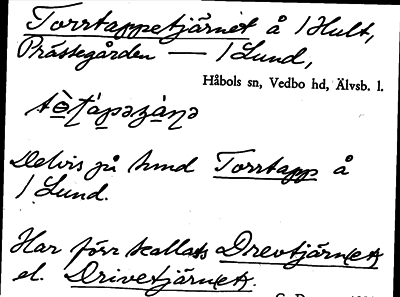 Torrtappetjärnet å 1 Hult,
Prästegården — 1 Lund,
Håbols sn, Vedbo hd, Älvsb. l.
Delvis på hmd Torrtapp å
1 Lund.
Har förr kallats Drevtjärnet
el. Drivetjärnet.